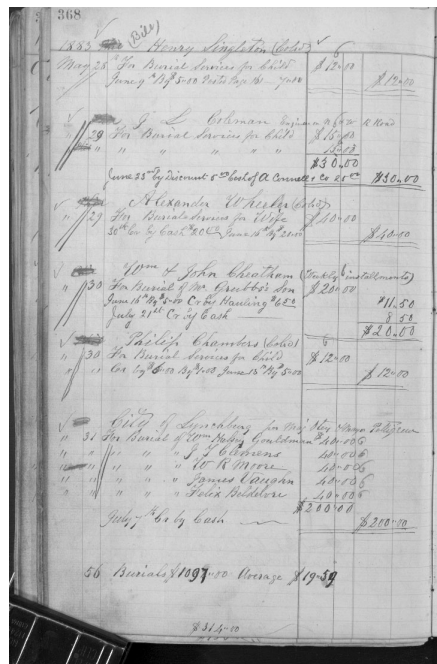 368
(Bill)
1883 Henry Singleton (Cold) 6
May 25th For Burial Services for Child $12-00
June 9th By $5-00 Posted Page 7-00 $12-00
J L Coleman Engineer R Road
29 For Burial Services for Child $15-00
" " " " " " 15-00
$30-00
June 23rd By Discount 5.00 Cash of A Connell & Co 25.00 $30-00
Alexander Wheeler (Cold)
29 For Burial Services for Wife $40-00
30th Cr By Cash $20.00 June 16th By $20-00 $40-00
Wm & John Cheatham (Weekly installments)
30 For Burial of Mr Grubbs's Son $20-00
June 16th By $5-00 Cr By Hauling $6.50 $11.50
July 21st Cr by Cash 8 50
$20-00
Philip Chambers (Cold) 6
30 For Burial Services for Child $12-00
Cr by $5-00 By $ June 13th By $5-00 $12-00
City of Lynchburg for Maj Otey Mayor Pettyjohn
" 31 For Burial of Wm Gouldman $40-00 6
" " " " J T Clehrens 40-00 6
" " " " W R Moore 40-00 6
" " " " James Vaughan 40-00 6
" " " " Felix 40-00 6
$200-00
July 7th Cr by Cash $200-00
56 Burials $1097-00 Average $19-59
$314-00